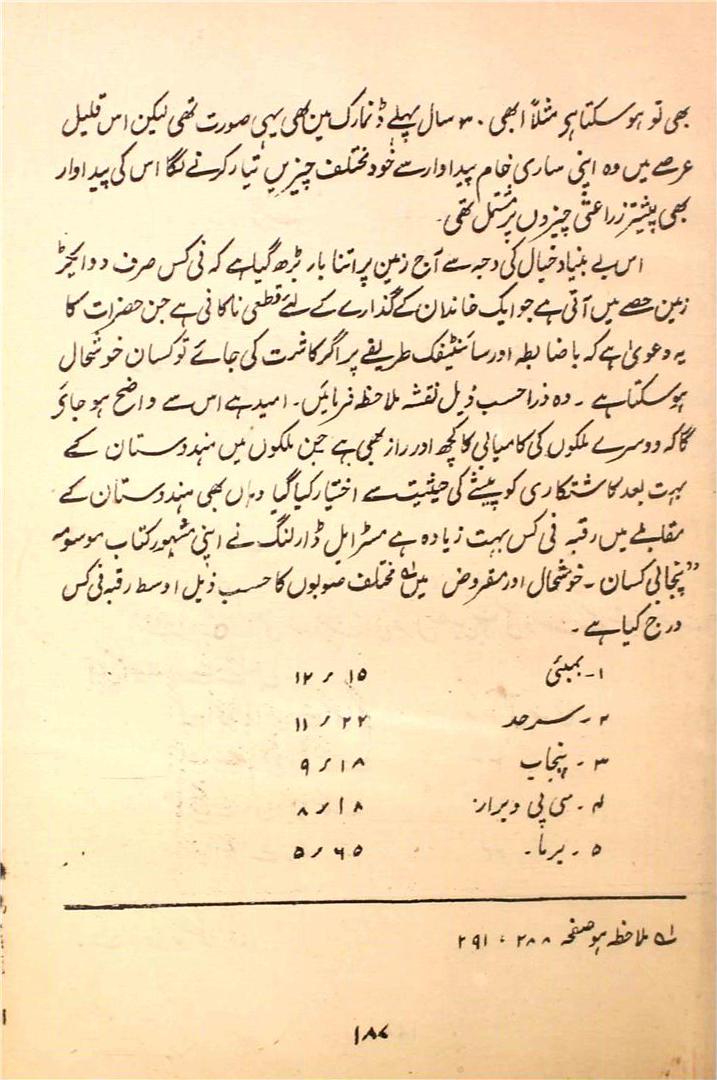 بھی تو ہو سکتا ہی مثلاً ابھی ۳۰ سال پہلے ڈنمارک مین بھی یہی صورت تھی لیکن اس قلیل
عرصے میں وہ اپنی ساری خام پیداوار سے خود مختلف چیزیں تیار کرنے لگا اس کی پیداوار
بھی پیشتر زراعتی چیزوں پر مشتمل تھی۔
اس بے بنیاد خیال کی وجہ سے آج زمین پر اتنا بار بڑھ گیا ہے کہ فی کس صرف دو ایکڑ
زمین حصے میں آتی ہے جو ایک خاندان کے گذارے کے لئے قطعی ناکافی ہے جن حضرات کا
یہ دعویٰ ہے کہ باضابطہ اور سائنٹیفک طریقے پر اگر کاشت کی جائے تو کسان خوشحال
ہو سکتا ہے ۔ وہ ذرا حسب ذیل نقشہ ملاحظہ فرمائیں۔ امید ہے اس سے واضح ہو جائے
گا کہ دوسرے ملکوں کی کامیابی کا کچھ اور راز بھی ہے جین ملکوں میں ہندوستان کے
بہت بعد کاشتکاری کو پیشے کی حیثیت سے اختیار کیا گیا وہاں بھی ہندوستان کے
مقابلے میں رقبہ فی کس بہت زیادہ ہے مسٹر ایل ڈارلنگ نے اپنی مشہور کتاب موسومہ
”پنجابی کسان ۔ خوشحال اور مقروض میں لہ مختلف صوبوں کا حسب ذیل اوسط رقبہ فی کس
درج کیا ہے ۔
۱۔ بمبئی ۱۲٫۱۵
۲۔ سرحد ۱۱٫۲۲
۳۔ پنجاب ۹٫۱۸
۴۔ سی پی و برار ۸٫۱۸
۵۔ برما۔ ۵٫۶۵
لہ ملاحظہ ہو صفحہ ۲۸۸ ، ۲۹۱
۱۸۷